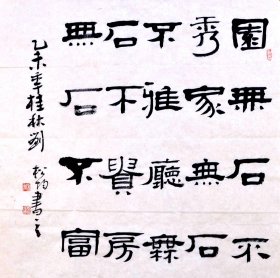 園無石不
秀家無石
不雅廳無
石不貴房
無石不富
乙未年桂秋劉
松書之